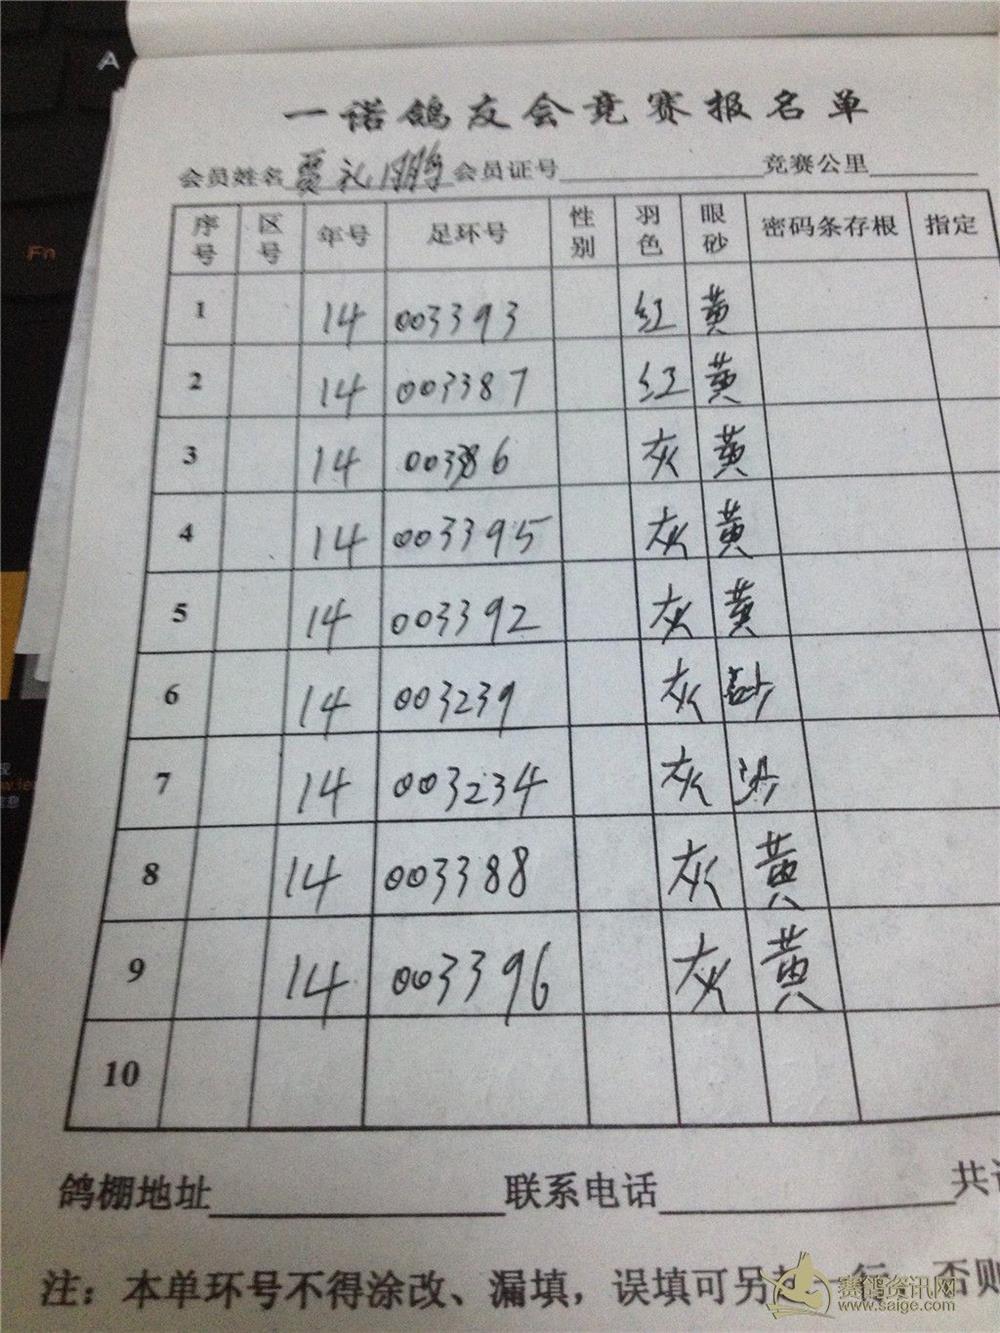 A
Fn
一诺鸽友会竞赛报名单
会员姓名 贾礼鹏 会员证号 竞赛公里
序号 区号 年号 足环号 性别 羽色 眼砂 密码条存根 指定
1 14 003393 红 黄
2 14 003387 红 黄
3 14 灰 黄
4 14 003395 灰 黄
5 14 003392 灰 黄
6 14 003239 灰 砂
7 14 003234 灰 沙
8 14 003388 灰 黄
9 14 003396 灰 黄
10
鸽棚地址 联系电话 共
注：本单环号不得涂改、漏填，误填可另 行，否则
赛鸽资讯网
www.saige.com